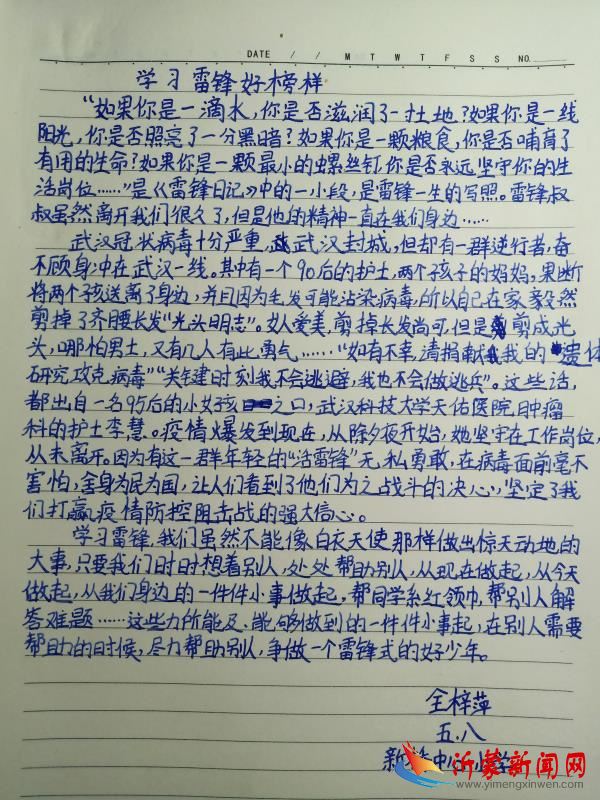 DATE / / M T W T F S S NO.
学习雷锋好榜样
“如果你是一滴水,你是否滋润了一寸土地?如果你是一线
阳光,你是否照亮了一分黑暗?如果你是一颗粮食,你是否哺育了
有用的生命?如果你是一颗最小的螺丝钉,你是否永远坚守你的生
活岗位……”是《雷锋日记》中的一小段,是雷锋一生的写照。雷锋叔
叔虽然离开我们很久了,但是他的精神一直在我们身边……
武汉冠状病毒十分严重,武汉封城,但却有一群逆行者,奋
不顾身冲在武汉一线。其中有一个90后的护士,两个孩子的妈妈,果断
将两个孩送离了身边,并且因为毛发可能沾染病毒,所以自己在家毅然
剪掉了齐腰长发“光头明志”。女人爱美,剪掉长发尚可,但是剪成光
头,哪怕男士,又有几人有此勇气……“如有不幸,请捐献我的遗体
研究攻克病毒”“关键时刻我不会逃避,我也不会做逃兵”。这些话,
都出自一名95后的小女孩之口,武汉科技大学天佑医院肿瘤
科的护士李慧。疫情爆发到现在,从除夕夜开始,她坚守在工作岗位,
从未离开。因为有这一群年轻的“活雷锋”无私勇敢,在病毒面前毫不
害怕,舍身为民为国,让人们看到了他们为之战斗的决心,坚定了我
们打赢疫情防控阻击战的强大信心。
学习雷锋,我们虽然不能像白衣天使那样做出惊天动地的
大事,只要我们时时想着别人,处处帮助别人,从现在做起,从今天
做起,从我们身边的一件件小事做起,帮同学系红领巾,帮别人解
答难题……这些力所能及、能够做到的一件件小事起,在别人需要
帮助的时候,尽力帮助别人,争做一个雷锋式的好少年。
全梓萍
五.八
新 中心小学
沂蒙新闻网
www.yimengxinwen.com